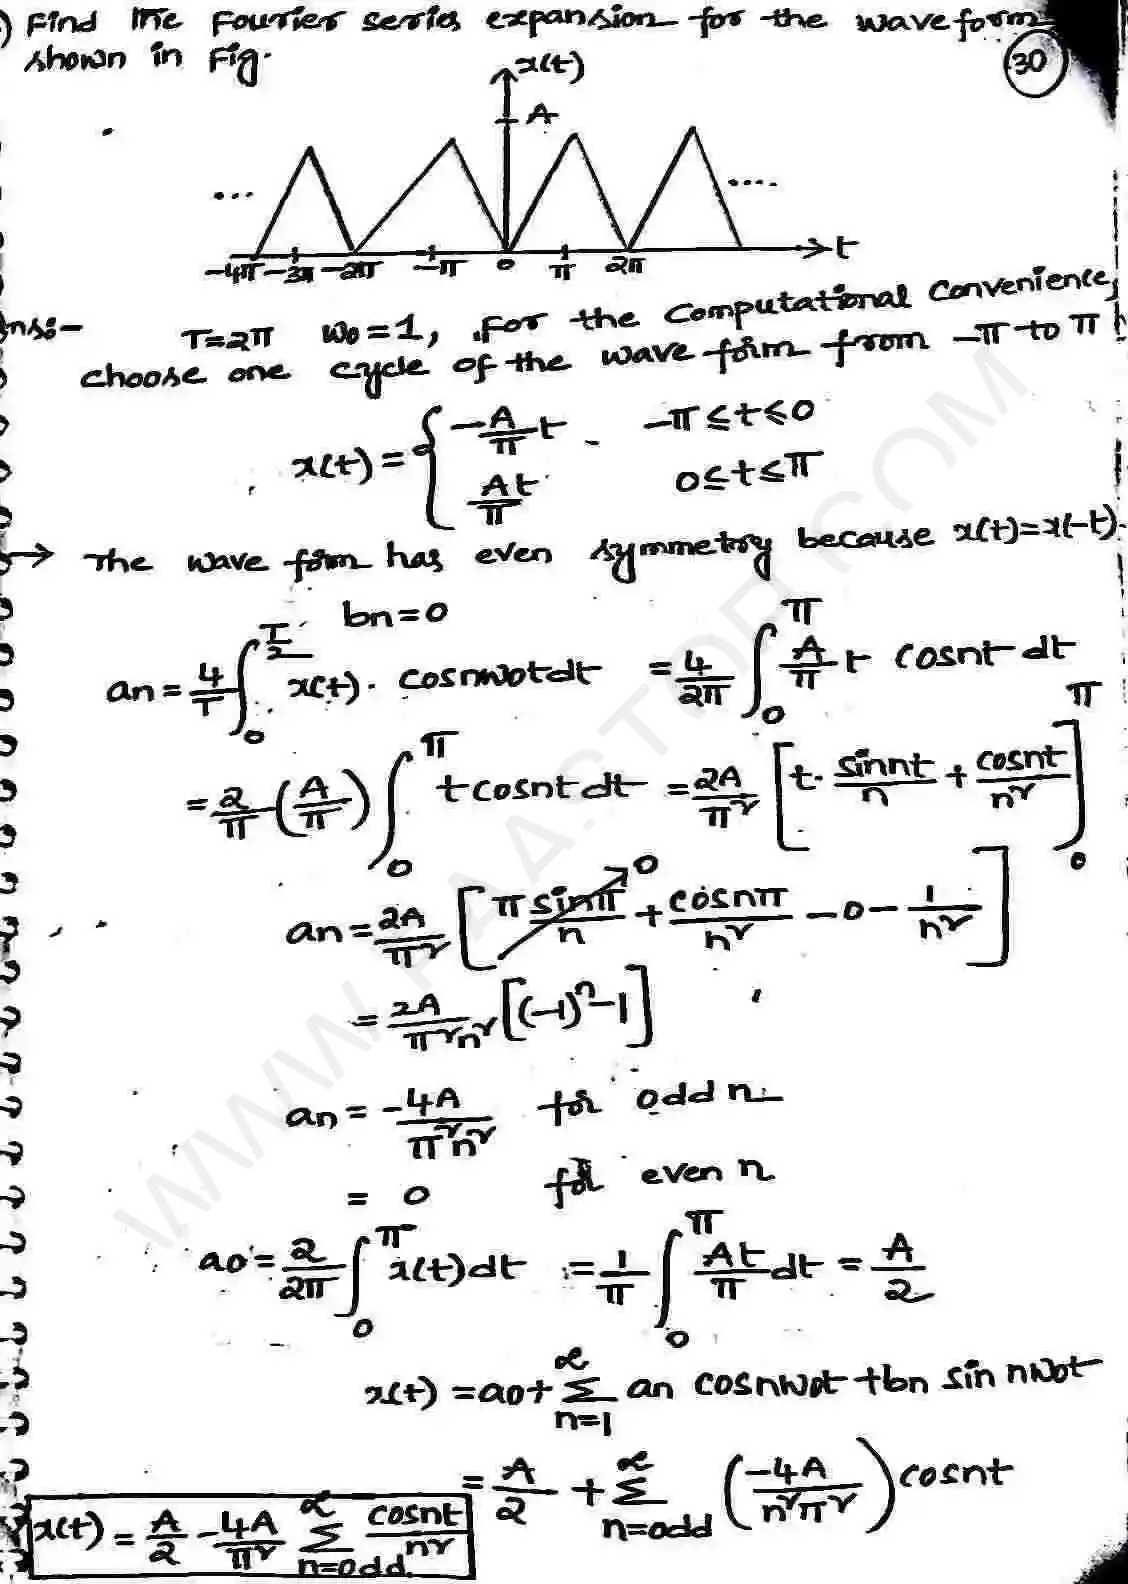 ) Find the Fourier series expansion for the waveform
shown in Fig.
30
x(t)
A
... ....
-4π -3π -2π -π 0 π 2π t
ns:- T=2π ω₀=1, For the Computational Convenience,
choose one cycle of the wave form from -π to π
x(t) = { -A/π t -π ≤ t ≤ 0
At/π 0 ≤ t ≤ π
→ The wave form has even symmetry because x(t)=x(-t).
bn=0
an = 4/T ∫₀^{T/2} x(t). cosnω₀t dt = 4/2π ∫₀^π A/π t cosnt dt
= 2/π (A/π) ∫₀^π t cosnt dt = 2A/π² [t. sinnt/n + cosnt/n²]₀^π
an = 2A/π² [π sinπ/n + cosnπ/n² - 0 - 1/n²]
0
= 2A/π²n² [(-1)ⁿ-1]
an = -4A/π²n² for odd n
= 0 for even n
a0 = 2/2π ∫₀^π x(t)dt = 1/π ∫₀^π At/π dt = A/2
x(t) = a0 + Σ_{n=1}^∝ an cosnω₀t + bn sin nω₀t
= A/2 + Σ_{n=odd}^∝ (-4A/n²π²) cosnt
x(t) = A/2 - 4A/π² Σ_{n=odd}^∝ cosnt/n²
WWW.FAASTOP.COM